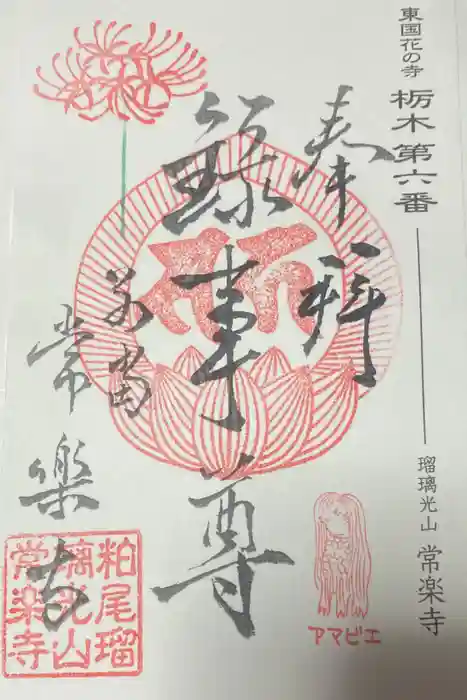 東国花の寺
栃木第六番
瑠璃光山
常楽寺
奉拝
録事尊
別当
常樂寺
粕尾瑠
璃光山
常楽寺
アマビエ